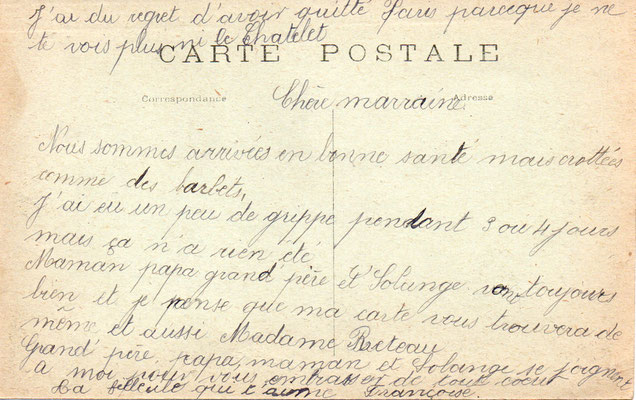 J'ai du regret d'avoir quitté Paris parceque je ne
te vois plus ni le Chatelet
CARTE POSTALE
Correspondance
Adresse
Chère marraine
Nous sommes arrivées en bonne santé mais crottées
comme des barbets,
J'ai eu un peu de grippe pendant 3 ou 4 jours
mais ça n'a rien été
Maman papa grand père et Solange vont toujours
bien et je pense que ma carte vous trouvera de
même et aussi Madame
Grand père, papa, maman et Solange se joignent
a moi pour vous embrasser de tout coeur
La filleule qui t'aime Françoise.